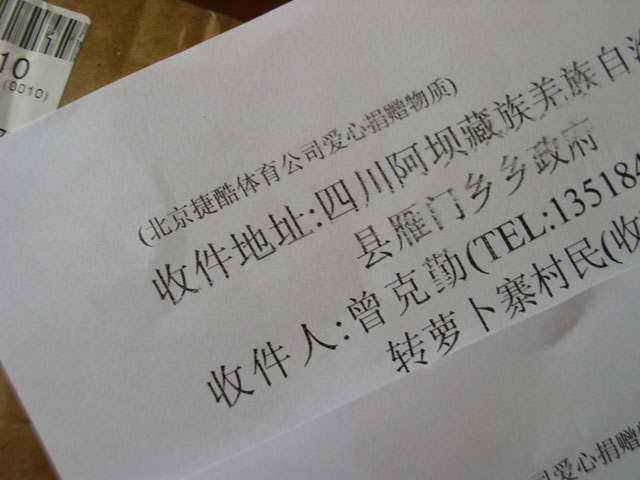 10
(0010)
(北京捷酷体育公司爱心捐赠物质)
收件地址:四川阿坝藏族羌族自治
县雁门乡乡政府
收件人:曾克勤(TEL:135184
转萝卜寨村民(收
司爱心捐赠物